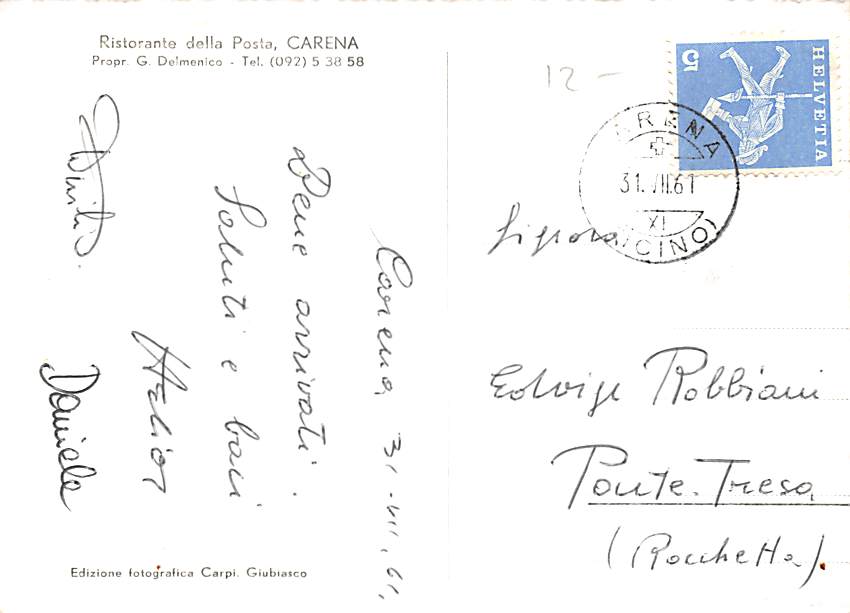 Ristorante della Posta, CARENA
Propr. G. Delmenico - Tel. (092) 5 38 58
Carena, 31-VII.61.
Bene arrivati.
Saluti e baci
Daniela
Edizione fotografica Carpi. Giubiasco
12 -
HELVETIA
5
ARENA
31.VII.61
XI
(TICINO)
Signora
Edvige Robbiani
Ponte-Tresa
(Rocchetta).